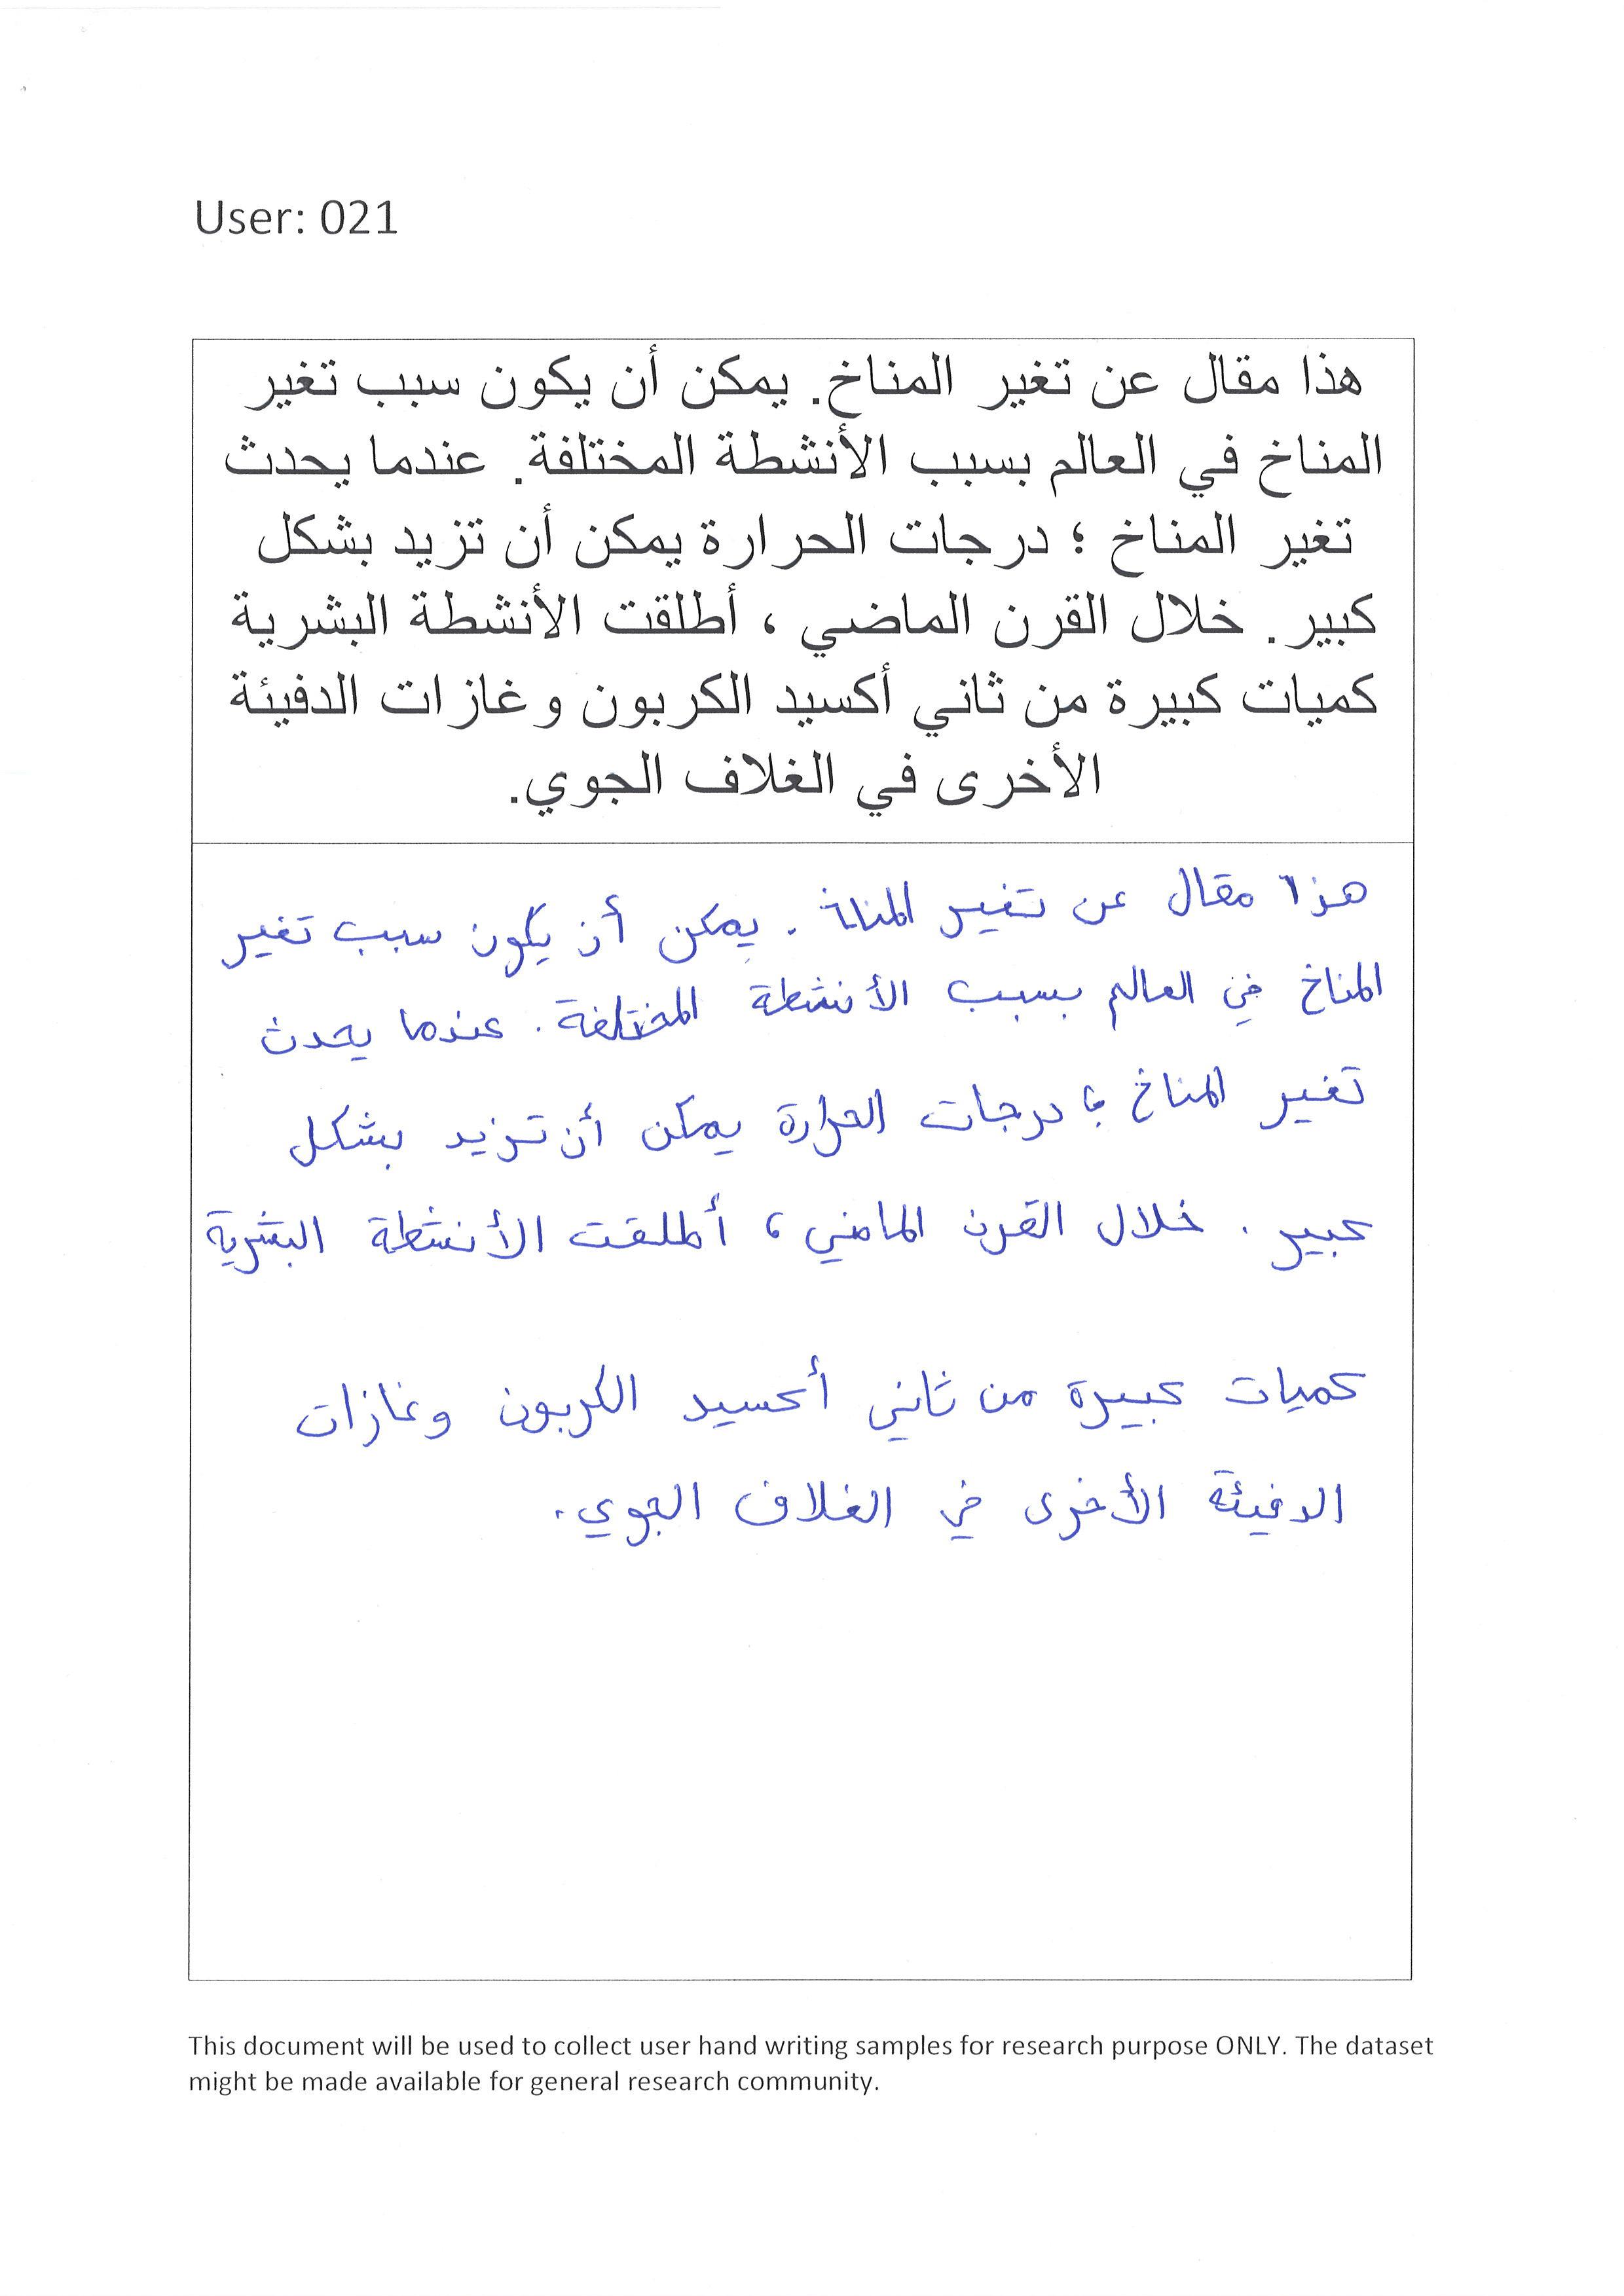 User: 021
هذا مقال عن تغير المناخ. يمكن أن يكون سبب تغير
المناخ في العالم بسبب الأنشطة المختلفة. عندما يحدث
تغير المناخ ؛ درجات الحرارة يمكن أن تزيد بشكل
كبير. خلال القرن الماضي ، أطلقت الأنشطة البشرية
كميات كبيرة من ثاني أكسيد الكربون وغازات الدفيئة
الأخرى في الغلاف الجوي.
هذا مقال عن تغير المناخ . يمكن أن يكون سبب تغير
المناخ في العالم بسبب الأنشطة المختلفة . عندما يحدث
تغير المناخ ؛ درجات الحرارة يمكن أن تزيد بشكل
كبير . خلال القرن الماضي ، أطلقت الأنشطة البشرية
كميات كبيرة من ثاني أكسيد الكربون وغازات
الدفيئة الأخرى في الغلاف الجوي.
This document will be used to collect user hand writing samples for research purpose ONLY. The dataset
might be made available for general research community.